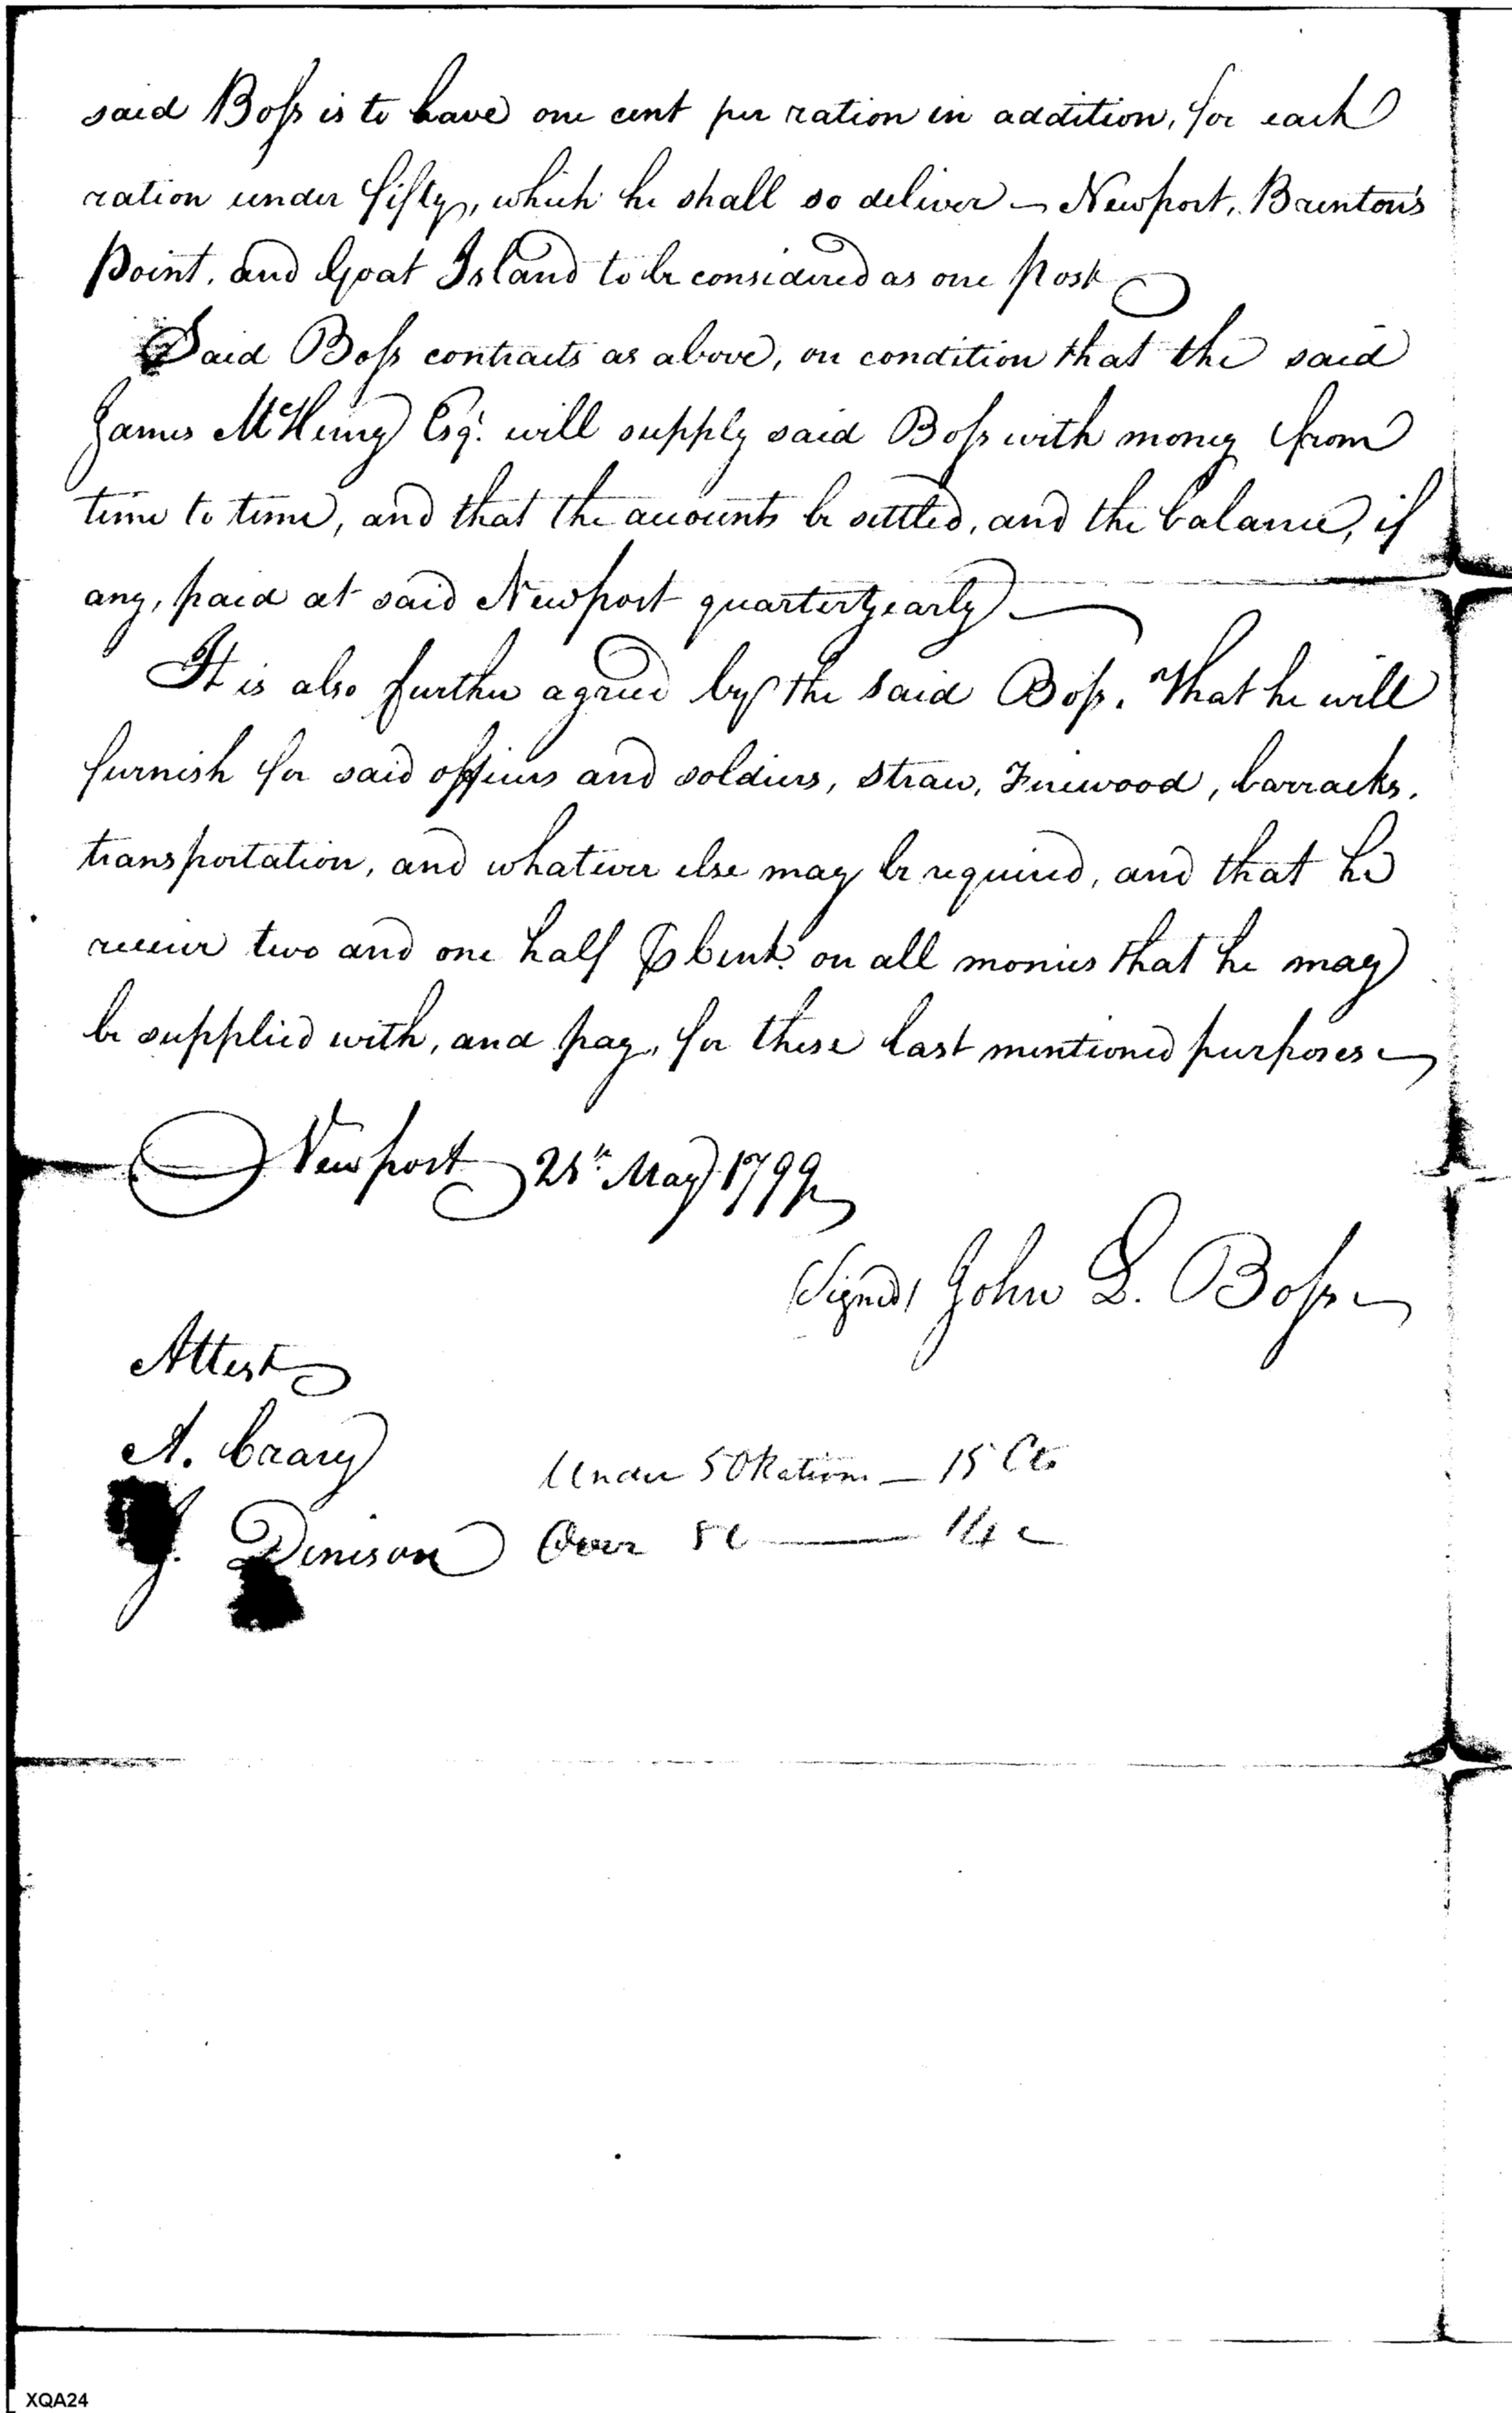 said Boſs is to have one cent per ration in addition, for each
ration under fifty, which he shall so deliver — Newport, Brenton's
Point, and Goat Island to be considered as one Post
Said Boſs contracts as above, on condition that the said
James McHenry Esqr. will supply said Boſs with money from
time to time, and that the accounts be settled, and the balance, if
any, paid at said Newport quarteryearly —
It is also further agreed by the said Boſs, That he will
furnish for said officers and soldiers, straw, Firewood, barracks,
transportation, and whatever else may be required, and that he
receive two and one half ⅌ Cent. on all monies that he may
be supplied with, and pay, for these last mentioned purposes —
Newport 25th May 1799
(Signed) John L. Boſs —
Attest
A. Crary
Under 50 Rations — 15 Cts
J. Denison
Over 50 — 14 c
XQA24